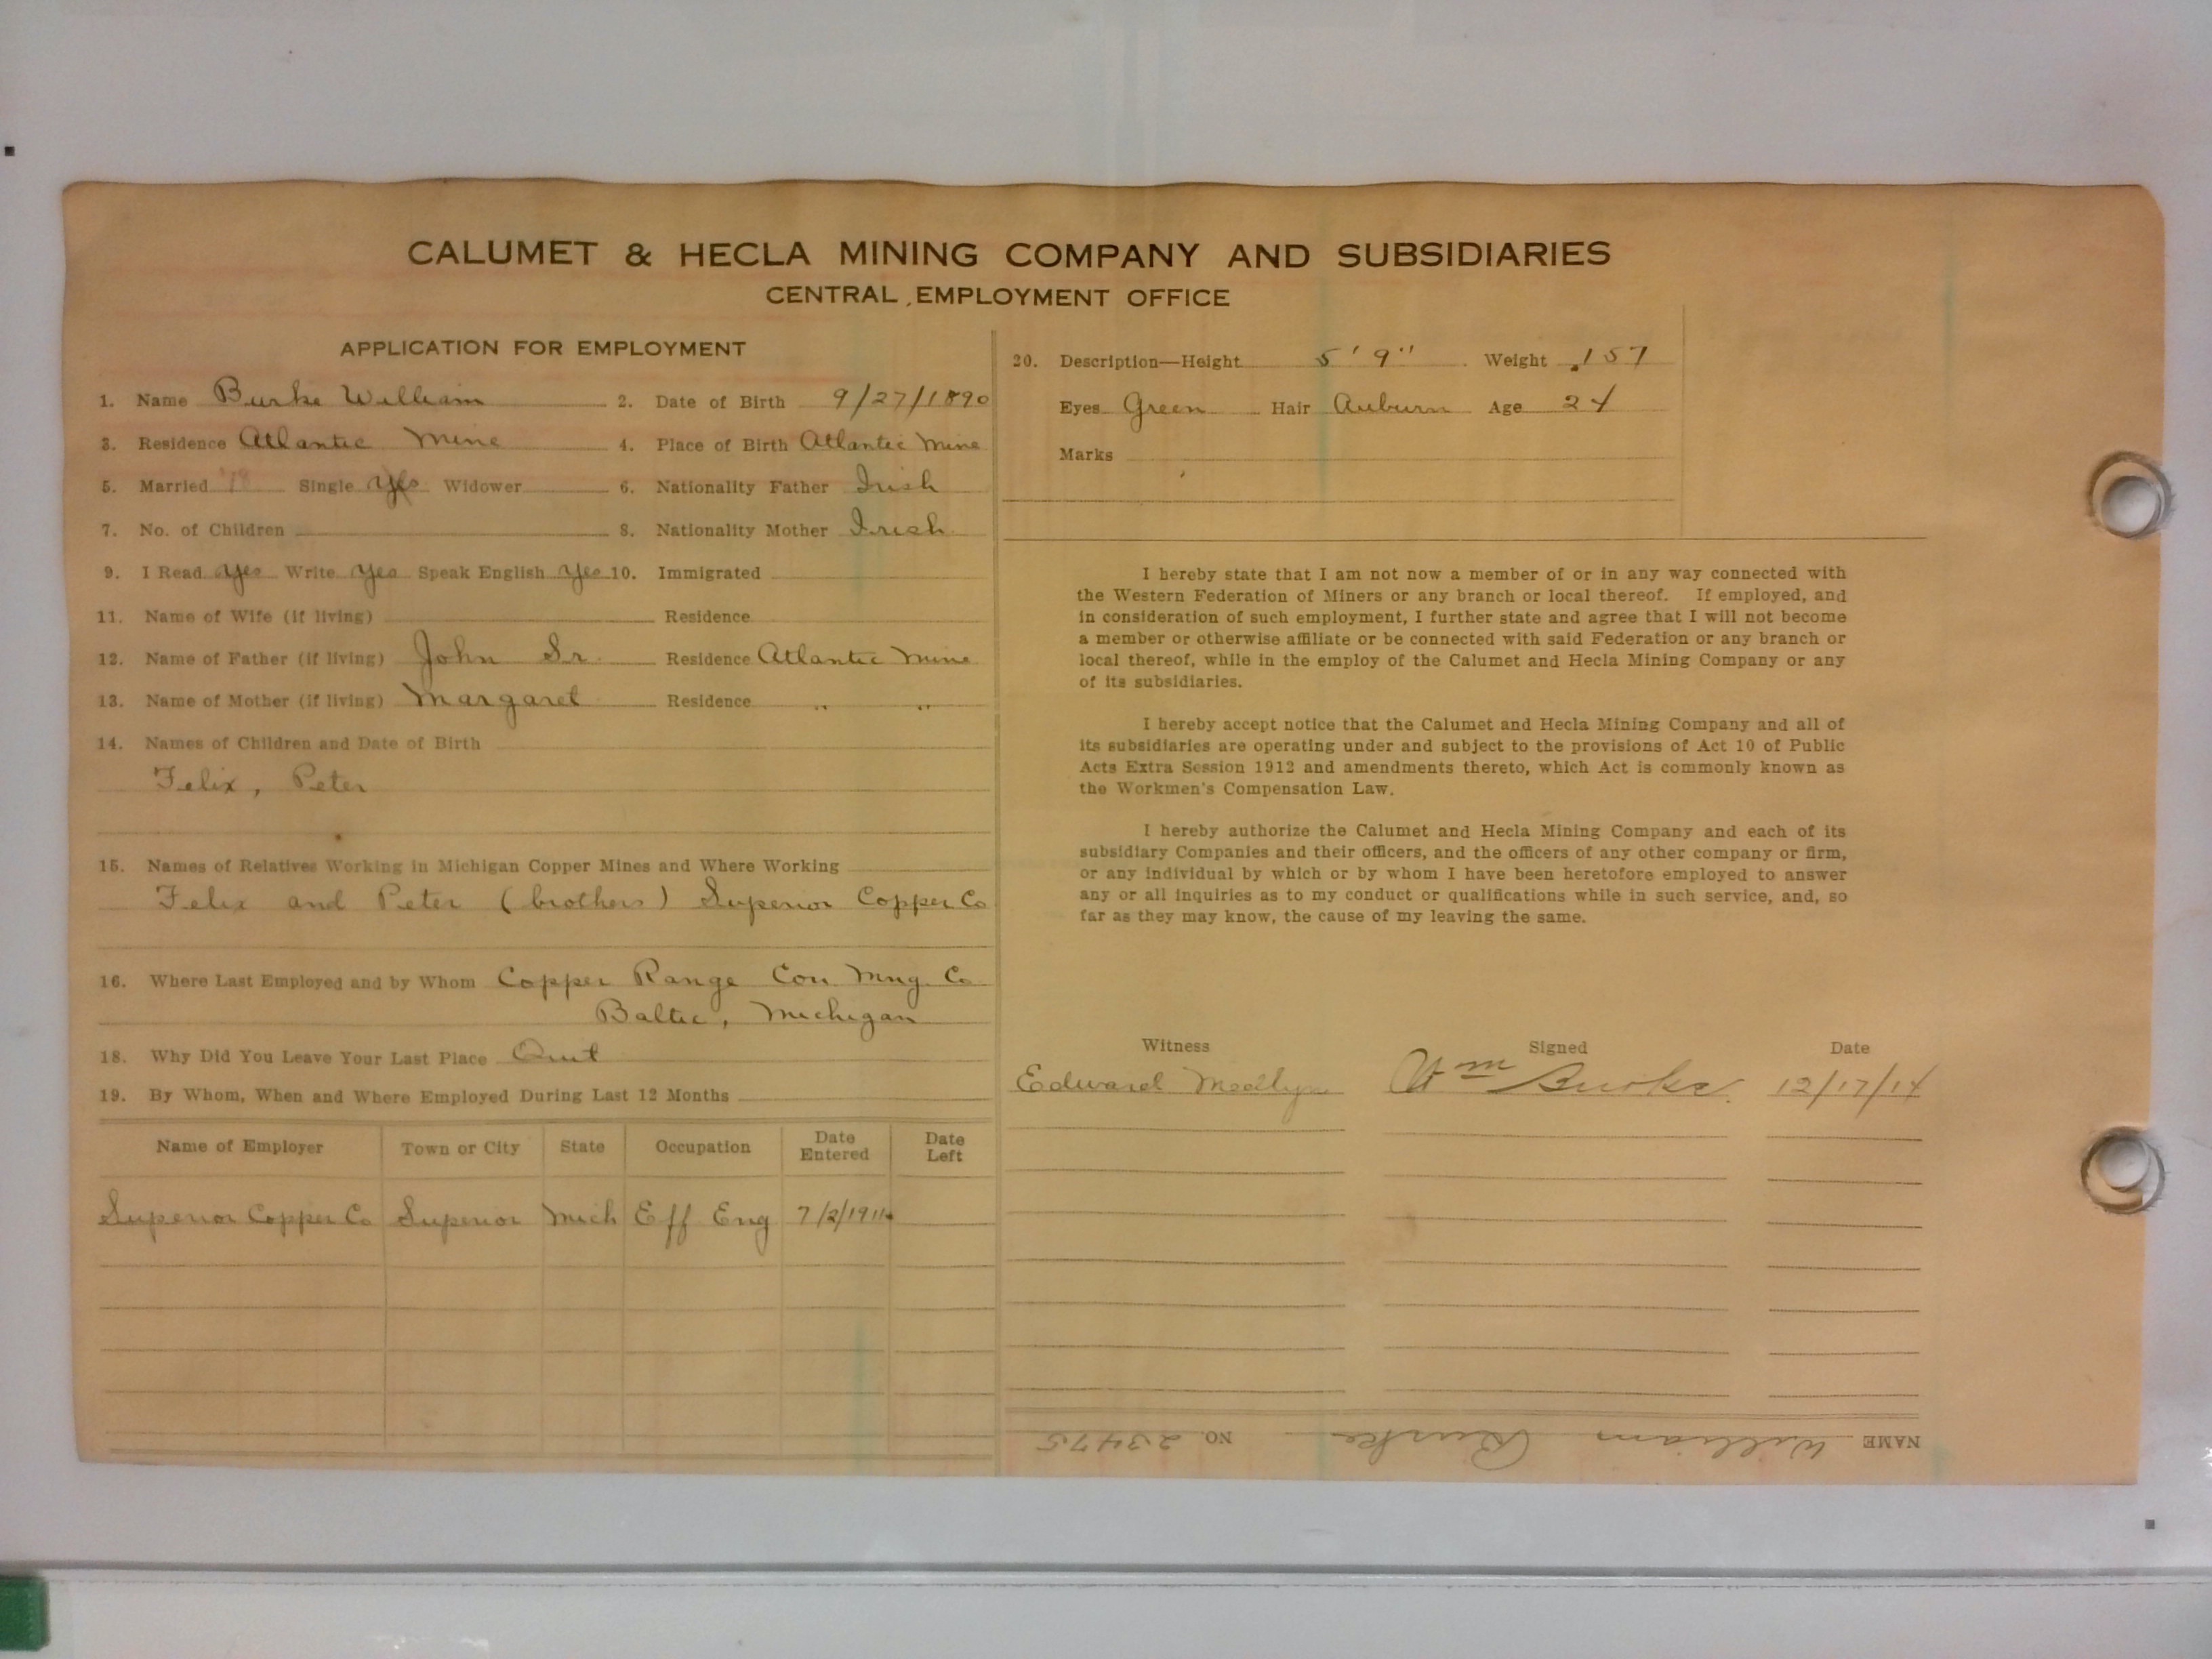 CALUMET & HECLA MINING COMPANY AND SUBSIDIARIES
CENTRAL EMPLOYMENT OFFICE
APPLICATION FOR EMPLOYMENT
1. Name Burke William 2. Date of Birth 9/27/1890
3. Residence Atlantic Mine 4. Place of Birth Atlantic Mine
5. Married Single Yes Widower 6. Nationality Father Irish
7. No. of Children 8. Nationality Mother Irish
9. I Read Yes Write Yes Speak English Yes 10. Immigrated
11. Name of Wife (if living) Residence
12. Name of Father (if living) John Sr. Residence Atlantic Mine
13. Name of Mother (if living) Margaret Residence " "
14. Names of Children and Date of Birth
Felix, Peter
15. Names of Relatives Working in Michigan Copper Mines and Where Working
Felix and Peter (brothers) Superior Copper Co
16. Where Last Employed and by Whom Copper Range Con Mng. Co
Baltic, Michigan
18. Why Did You Leave Your Last Place Quit
19. By Whom, When and Where Employed During Last 12 Months
Name of Employer Town or City State Occupation Date Entered Date Left
Superior Copper Co Superior Mich Eff Eng
20. Description—Height 5' 9" Weight 157
Eyes Green Hair Auburn Age 24
Marks
I hereby state that I am not now a member of or in any way connected with
the Western Federation of Miners or any branch or local thereof. If employed, and
in consideration of such employment, I further state and agree that I will not become
a member or otherwise affiliate or be connected with said Federation or any branch or
local thereof, while in the employ of the Calumet and Hecla Mining Company or any
of its subsidiaries.
I hereby accept notice that the Calumet and Hecla Mining Company and all of
its subsidiaries are operating under and subject to the provisions of Act 10 of Public
Acts Extra Session 1912 and amendments thereto, which Act is commonly known as
the Workmen's Compensation Law.
I hereby authorize the Calumet and Hecla Mining Company and each of its
subsidiary Companies and their officers, and the officers of any other company or firm,
or any individual by which or by whom I have been heretofore employed to answer
any or all inquiries as to my conduct or qualifications while in such service, and, so
far as they may know, the cause of my leaving the same.
Witness Signed Date
Edward Wm Burke. 12/17/14
NAME William Burke NO 23475